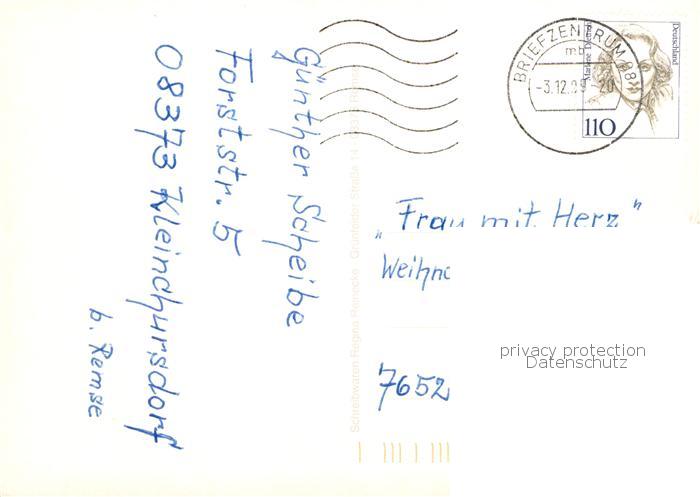 Günther Scheibe
Forststr. 5
08373 Kleinchursdorf
b. Remse
Schreibwaren Regina Reinecke Grünfelder Straße 14
BRIEFZENTRUM 08
mb
-3.12.99-20
Marlene Dietrich
Deutschland
110
„Frau mit Herz"
Weihn
7652
privacy protection
Datenschutz